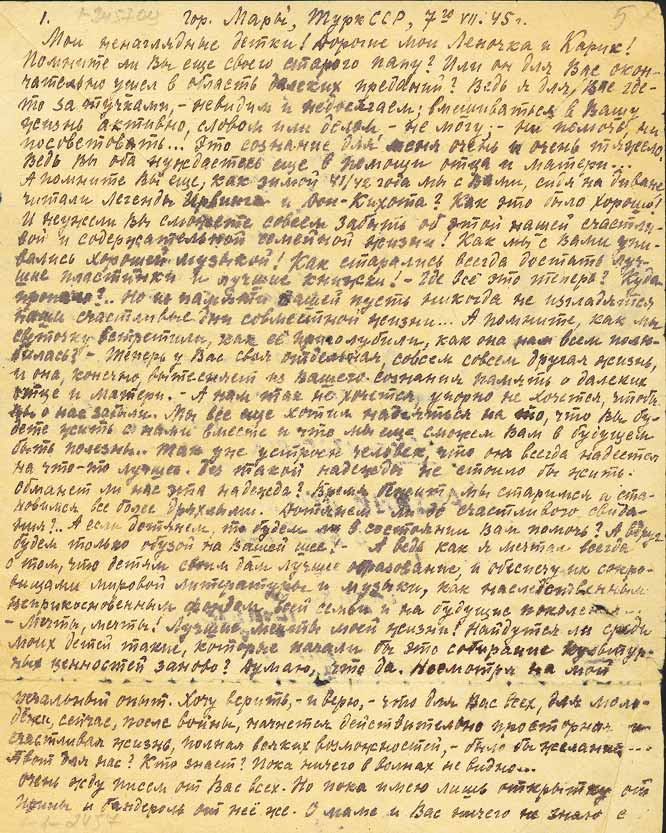 1. гор. Мары, Турк ССР, 7го VII. 45 г. 5
Мои ненаглядные детки! Дорогие мои Леночка и Карик!
Помните ли Вы еще своего старого папу? Или он для Вас окон-
чательно ушел в область далеких преданий? Ведь я для Вас где-
то за тучками, - невидим и недосягаем; вмешиваться в Вашу
жизнь активно, словом или делом, - не могу, - ни помочь, ни
посоветовать... Это сознание для меня очень и очень тяжело.
Ведь Вы оба нуждаетесь еще в помощи отца и матери...
А помните Вы еще, как зимой 41/42 года мы с Вами, сидя на диване
читали легенды Ирвинга и Дон-Кихота? Как это было хорошо!
И неужели Вы сможете совсем забыть об этой нашей счастли-
вой и содержательной семейной жизни! Как мы с Вами упи-
вались хорошей музыкой! Как старались всегда достать луч-
шие пластинки и лучшие книжки! - Где всё это теперь? Куда
пропало?.. Но из памяти Вашей пусть никогда не изгладятся
наши счастливые дни совместной жизни... А помните, как мы
встретили, как её приголубили, как она нам всем полю-
билась? - Теперь у Вас своя отдельная, совсем совсем другая жизнь,
и она, конечно, вытесняет из Вашего сознания память о далеких
отце и матери. - А нам так не хочется, упорно не хочется, чтобы
Вы о нас забыли. Мы всё еще хотим надеяться на то, что Вы бу-
дете жить с нами вместе и что мы еще сможем Вам в будущем
быть полезны... Так уже устроен человек, что он всегда надеется
на что-то лучшее. Без такой надежды не стоило бы жить.
Обманет ли нас эта надежда? Время бежит, мы старимся и ста-
новимся все более дряхлыми. Дотянем ли до счастливого свида-
ния?.. А если дотянем, то будем ли в состоянии Вам помочь? А вдруг
будем только обузой на Вашей шее! - А ведь как я мечтал всегда
о том, что детям своим дам лучшее образование, и обеспечу их сокро-
вищами мировой литературы и музыки, как наследственным
неприкосновенным фондом всей семьи и на будущие поколения...
- Мечты, мечты! Лучшие мечты моей жизни! Найдутся ли среди
моих детей такие, которые начали бы это собирание культур-
ных ценностей заново? Думаю, что да. Несмотря на мой
печальный опыт. Хочу верить, - и верю, - что для Вас всех, для моло-
дежи, сейчас, после войны, начнется действительно просторная и
счастливая жизнь, полная всяких возможностей, - было бы желание...
А вот для нас? Кто знает? Пока ничего в волнах не видно...
Очень жду писем от Вас всех. Но пока имею лишь открытку от
и бандероль от неё же. О маме и Вас ничего не знаю с